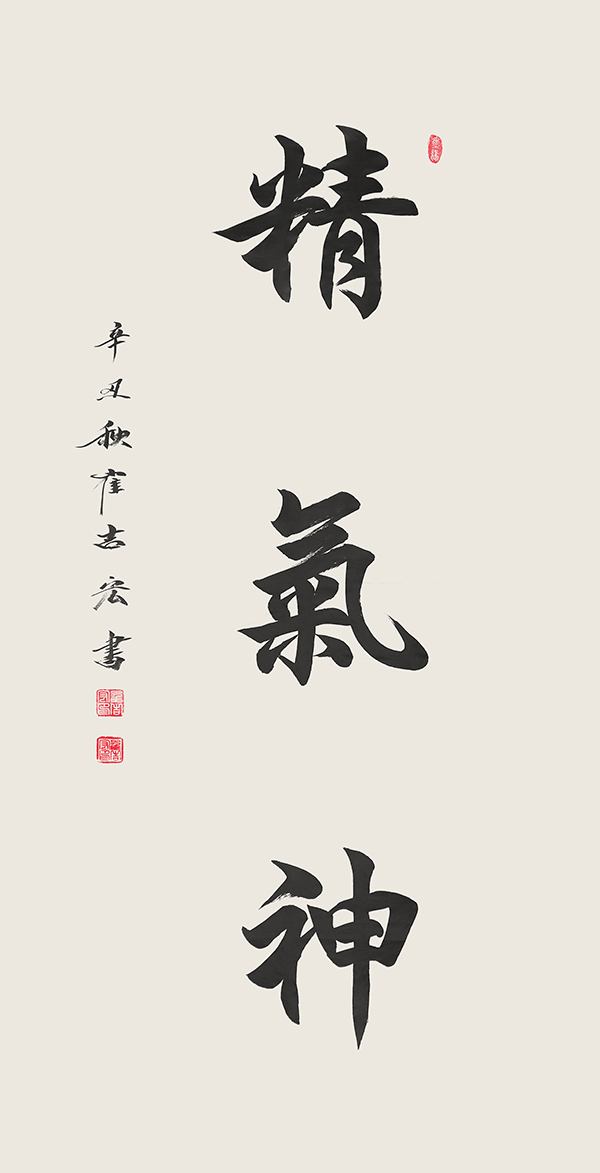 精氣神
辛丑秋崔志宏書